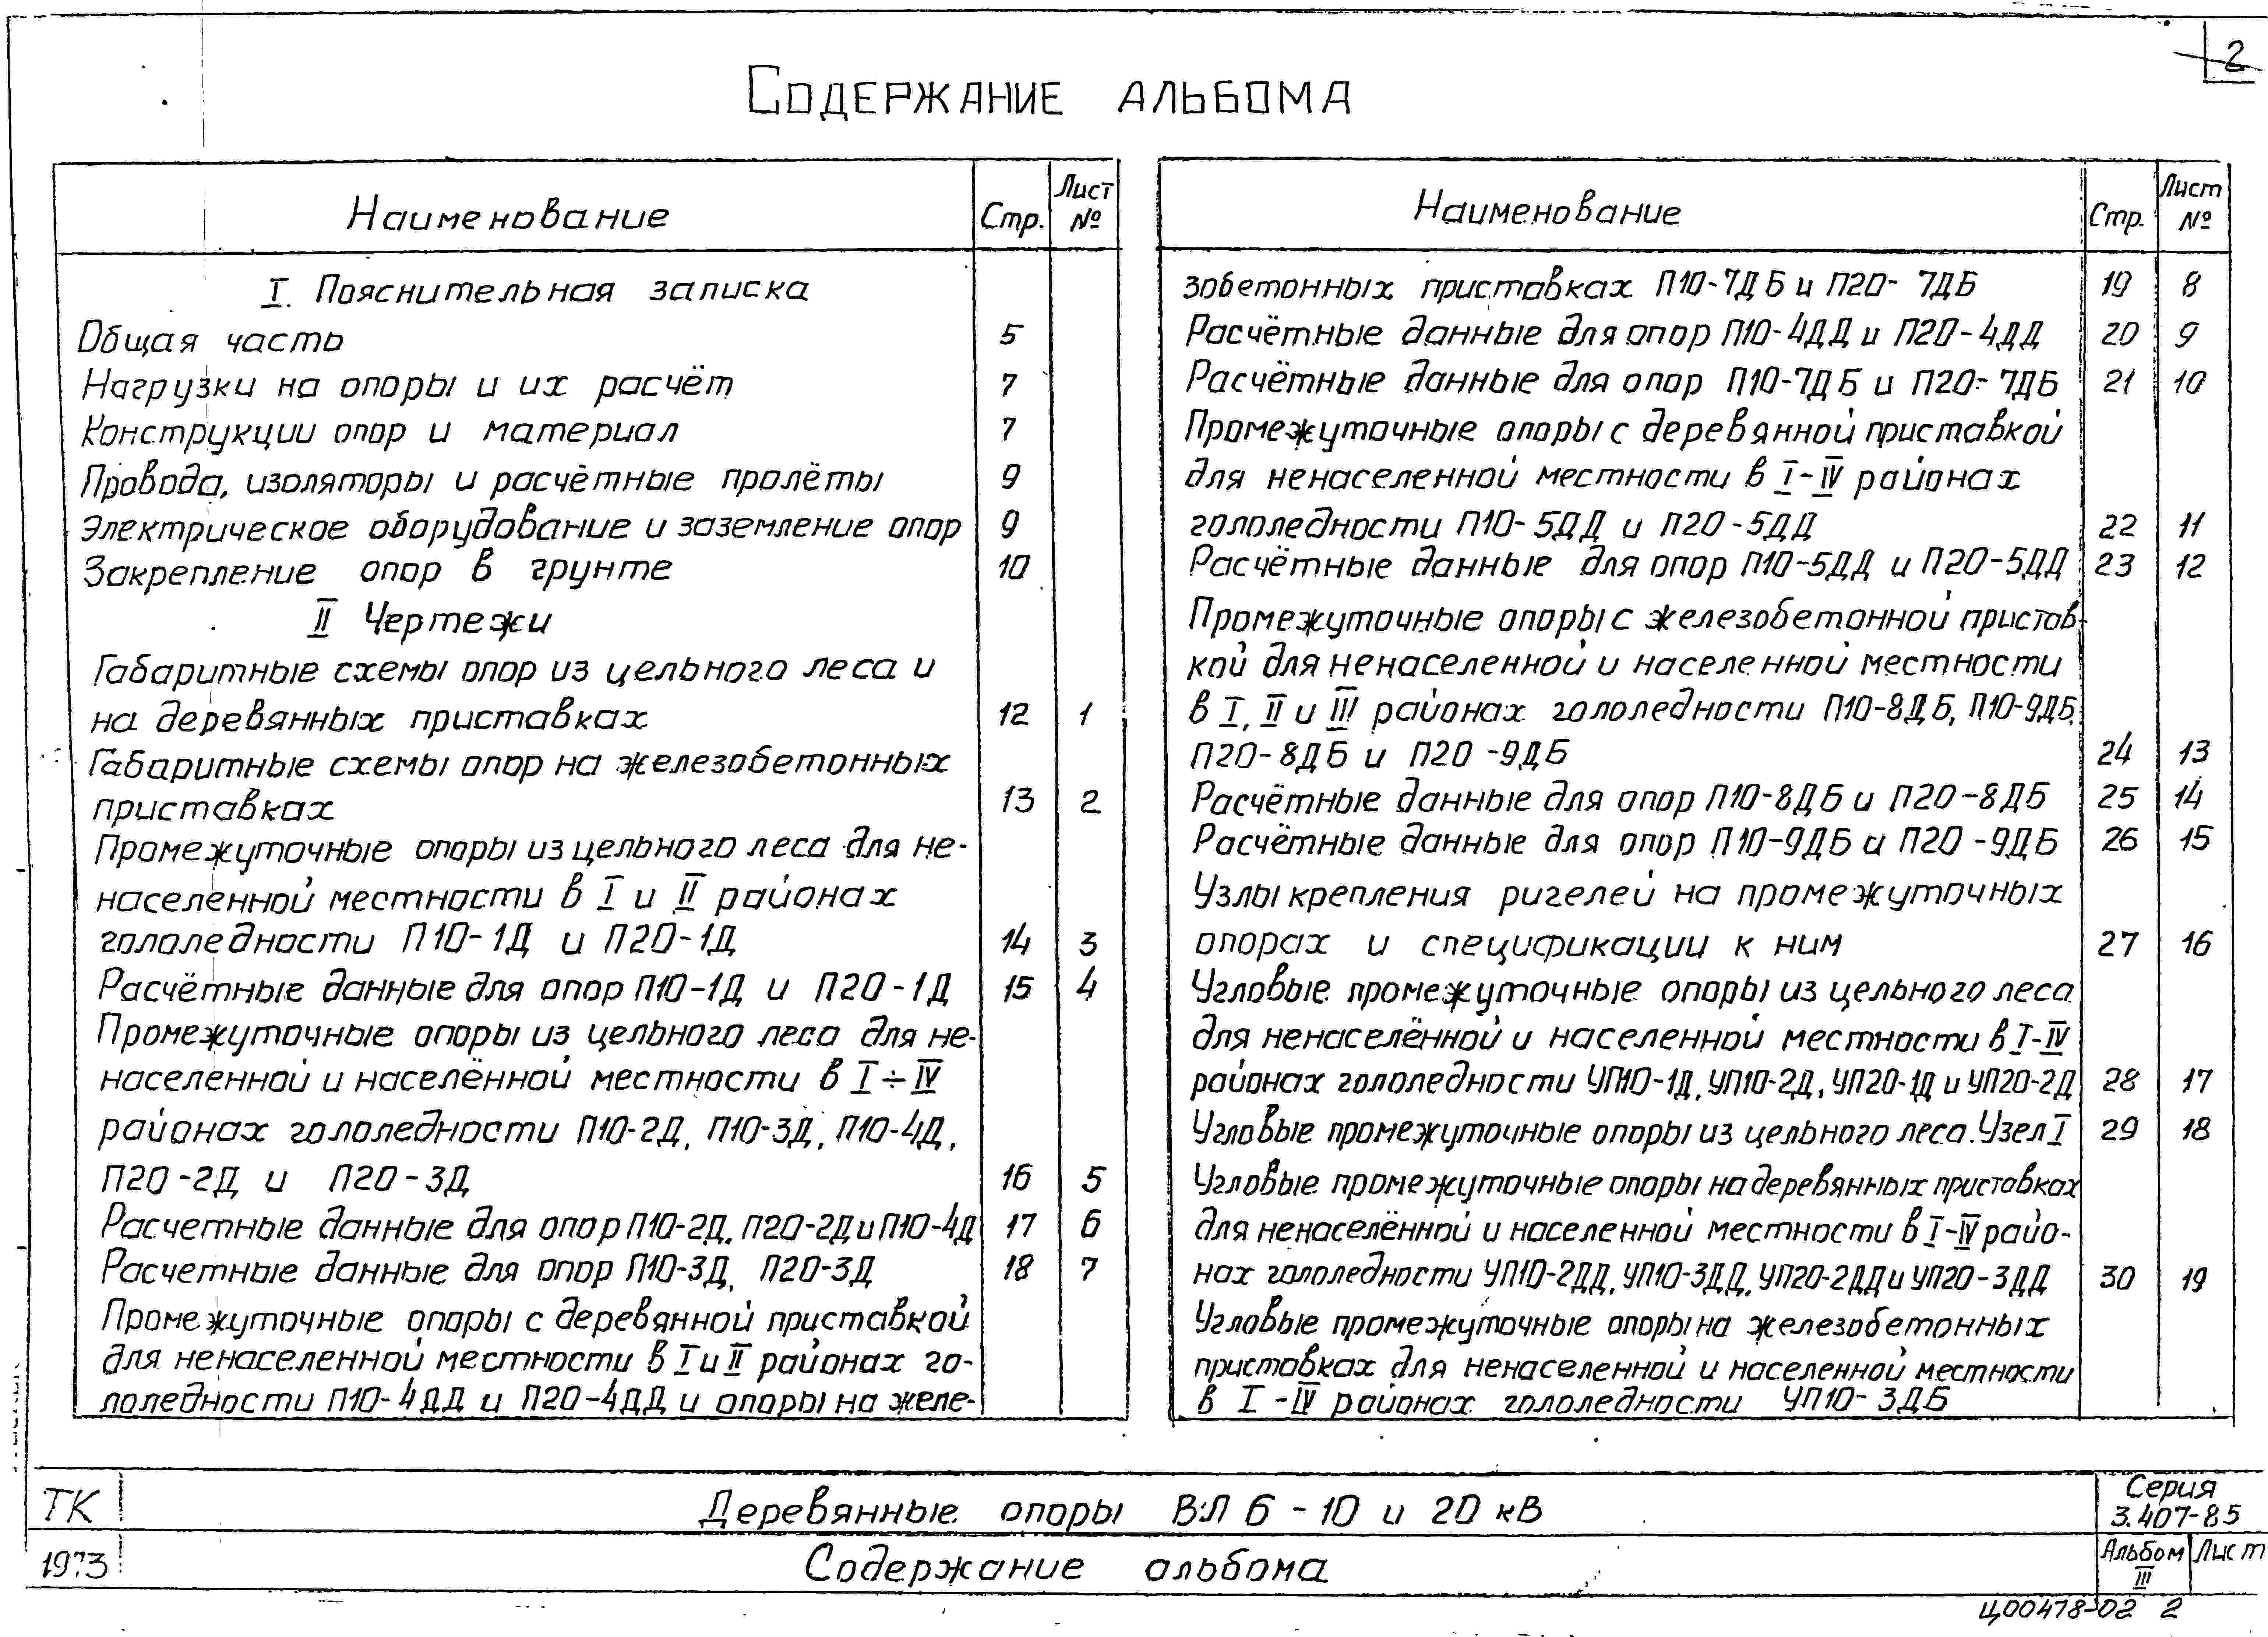 2
Содержание альбома
Наименование Стр. Лист №
I. Пояснительная записка
Общая часть 5
Нагрузки на опоры и их расчёт 7
Конструкции опор и материал 7
Провода, изоляторы и расчётные пролёты 9
Электрическое оборудование и заземление опор 9
Закрепление опор в грунте 10
II Чертежи
Габаритные схемы опор из цельного леса и
на деревянных приставках 12 1
Габаритные схемы опор на железобетонных
приставках 13 2
Промежуточные опоры из цельного леса для не-
населенной местности в I и II районах
гололедности П10-1Д и П20-1Д 14 3
Расчётные данные для опор П10-1Д и П20-1Д 15 4
Промежуточные опоры из цельного леса для не-
населенной и населённой местности в I÷IV
районах гололедности П10-2Д, П10-3Д, П10-4Д,
П20-2Д и П20-3Д 16 5
Расчетные данные для опор П10-2Д, П20-2Д и П10-4Д 17 6
Расчетные данные для опор П10-3Д, П20-3Д 18 7
Промежуточные опоры с деревянной приставкой
для ненаселенной местности в I и II районах го-
лоледности П10-4ДД и П20-4ДД и опоры на желе-
Наименование Стр. Лист №
зобетонных приставках П10-7ДБ и П20-7ДБ 19 8
Расчётные данные для опор П10-4ДД и П20-4ДД 20 9
Расчётные данные для опор П10-7ДБ и П20-7ДБ 21 10
Промежуточные опоры с деревянной приставкой
для ненаселенной местности в I-IV районах
гололедности П10-5ДД и П20-5ДД 22 11
Расчётные данные для опор П10-5ДД и П20-5ДД 23 12
Промежуточные опоры с железобетонной пристав-
кой для ненаселенной и населенной местности
в I, II и III районах гололедности П10-8ДБ, П10-9ДБ,
П20-8ДБ и П20-9ДБ 24 13
Расчётные данные для опор П10-8ДБ и П20-8ДБ 25 14
Расчётные данные для опор П10-9ДБ и П20-9ДБ 26 15
Узлы крепления ригелей на промежуточных
опорах и спецификации к ним 27 16
Угловые промежуточные опоры из цельного леса
для ненаселённой и населенной местности в I-IV
районах гололедности УП10-1Д, УП10-2Д, УП20-1Д и УП20-2Д 28 17
Угловые промежуточные опоры из цельного леса. Узел I 29 18
Угловые промежуточные опоры на деревянных приставках
для ненаселённой и населенной местности в I-IV райо-
нах гололедности УП10-2ДД, УП10-3ДД, УП20-2ДД и УП20-3ДД 30 19
Угловые промежуточные опоры на железобетонных
приставках для ненаселенной и населенной местности
в I-IV районах гололедности УП10-3ДБ
ТК
1973
Деревянные опоры ВЛ 6-10 и 20 кВ
Содержание альбома
Серия
3.407-85
Альбом III Лист
Ц00478-02 2